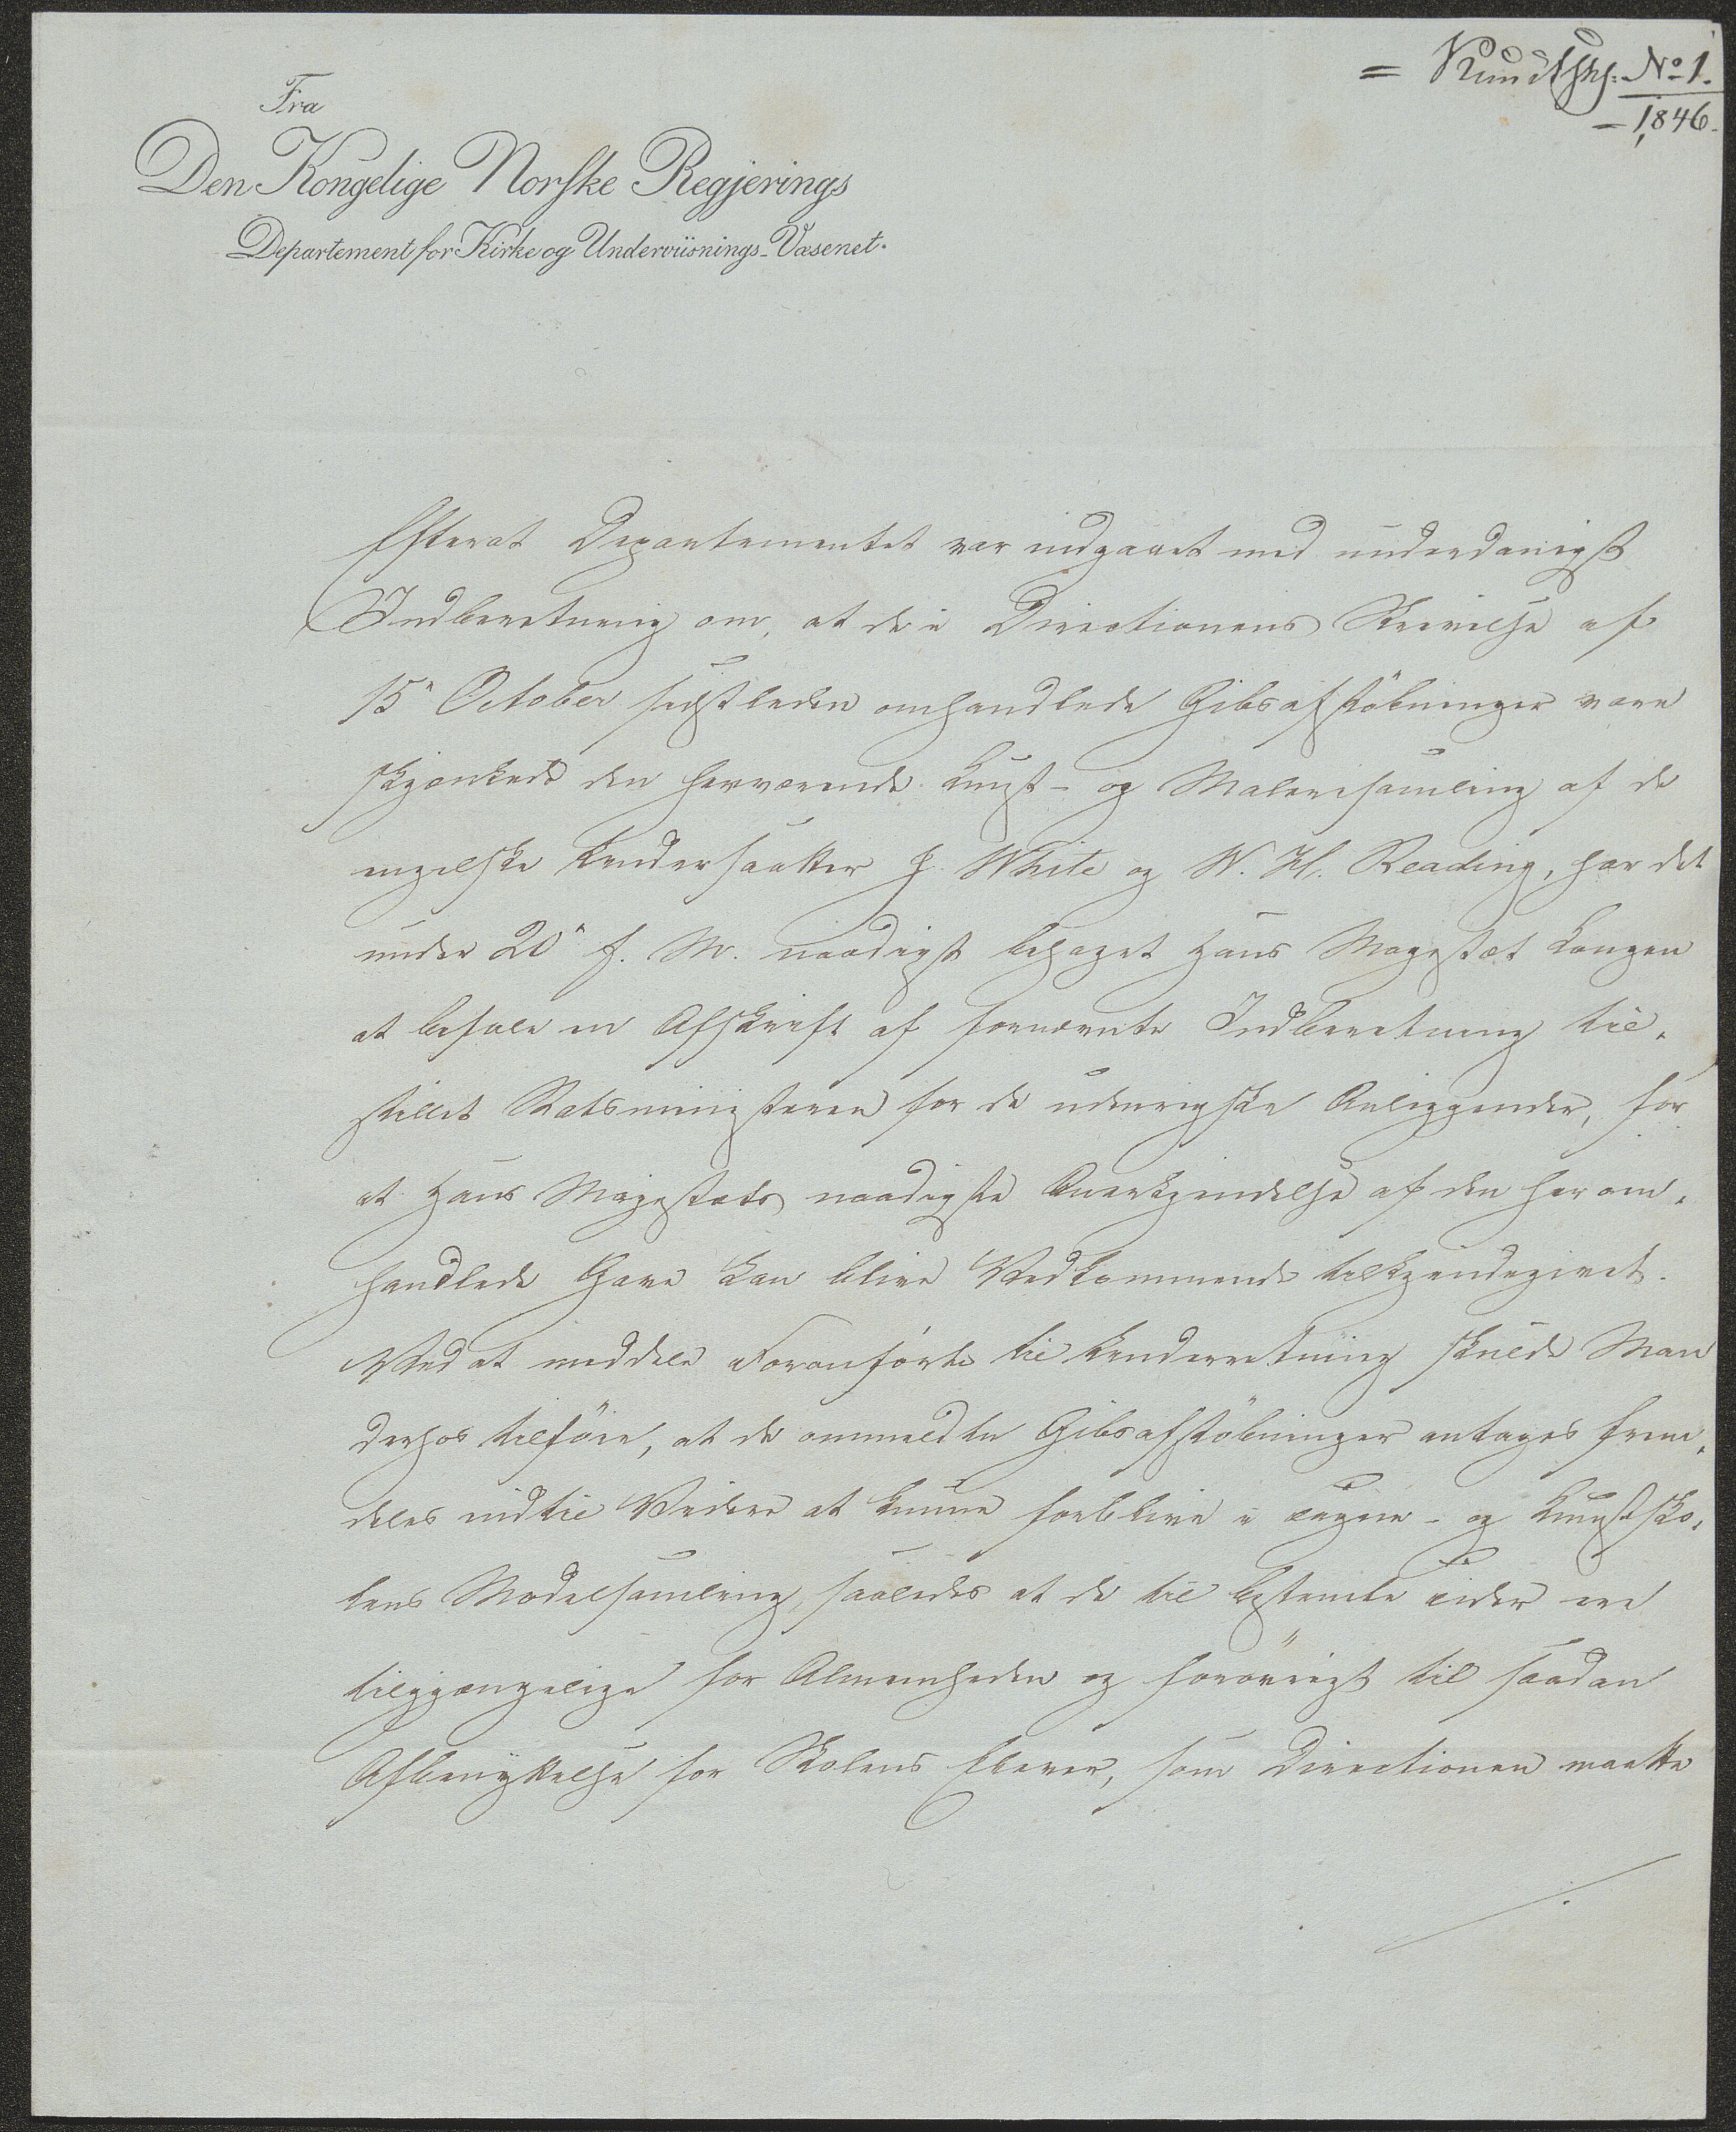 = Kunstsk. No 1.
1846.
Fra
Den Kongelige Norske Regjerings
Departement for Kirke og Underviisnings-Væsenet.
Efterat Departementet var indgaaet med underdanigst
Indberetning om, at de i Directionens Skrivelse af
15de October sidstleden omhandlede Gibsafstöbninger vare
skjænkede den herværende Kunst- og Malerisamling af de
engelske Undersaatter J. White og W. H. Reading, har det
under 20de f. M. naadigst behaget Hans Majestæt Kongen
at befale en Afskrift af fornævnte Indberetning til-
stillet Statsministeren for de udenrigske Anliggender, for
at Hans Majestæts naadigste Anerkjendelse af den her om-
handlede Gave kan blive Vedkommende tilkjendegivet.
Ved at meddele Foranförte til Underretning skulde Man
derhos tilföie, at de ommeldte Gibsafstöbninger antages frem-
deles indtil Videre at kunne forblive i Tegne- og Kunstsko-
lens Modelsamling, saaledes at de til bestemte Tider ere
tilgjængelige for Almeenheden og forövrigt til saadan
Afbenyttelse for Skolens Elever, som Directionen maatte